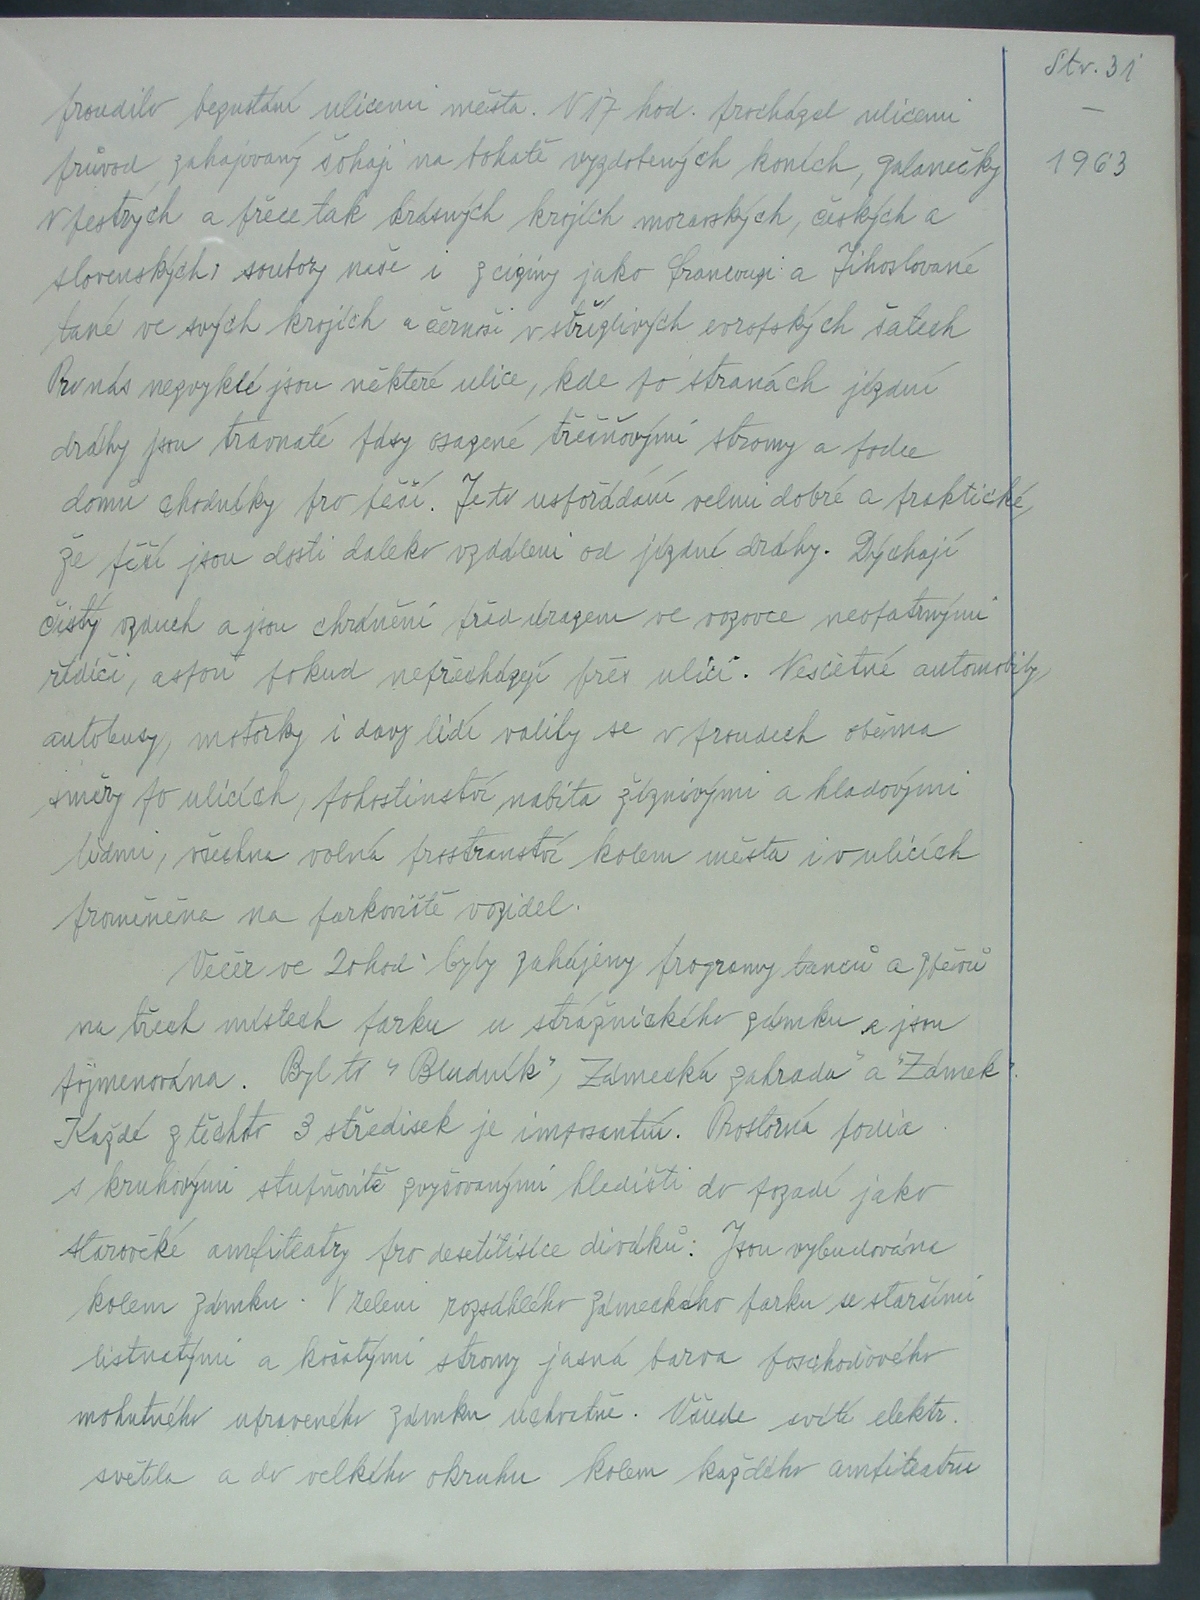 Str. 31
—
1963
proudilo beyustání ulicemi města. V 17 hod. procházel ulicemi
průvod, zahajovaný šohaji na bohatě vyzdobených koních, galanečky
v pestrých a přece tak krásných krojích moravských, českých a
slovenských, soubory naše i z ciziny jako francouzi a Jihoslované
také ve svých krojích a černoši v střízlivých evropských šatech
Pro nás nezvyklé jsou některé ulice, kde po stranách jízdní
dráhy jsou travnaté pásy osazené třešňovými stromy a podle
domů chodníky pro pěší. Je to uspořádání velmi dobré a praktické,
že pěší jsou dosti daleko vzdáleni od jízdní dráhy. Dýchají
čistý vzduch a jsou chráněni před úrazem ve vozovce neopatrnými
řidiči, aspoň pokud nepřecházejí přes ulici. Nesčetné automobily,
autobusy, motorky i davy lidí valily se v proudech oběma
směry po ulicích, pohostinství nabita žíznivými a hladovými
lidmi, všechna volná prostranství kolem města i v ulicích
proměněna na parkoviště vozidel.
Večer ve 20 hod. byly zahájeny programy tanců a zpěvů
na třech místech parku u strážnického zámku a jsou
pojmenována. Byl to "Bludník", Zámecká zahrada" a "Zámek".
Každé z těchto 3 středisek je imposantní. Prostorná podia
s kruhovými stupňovitě zvyšovanými hledišti do pozadí jako
starověké amfiteatry pro desetitisíce diváků: Jsou vybudována
kolem zámku. V zeleni rozsáhlého zámeckého parku se staršími
listnatými a košatými stromy jasná barva poschoďového
mohutného upraveného zámku úchvatně. Všude svítí elektr.
světla a do velkého okruhu kolem každého amfiteatru